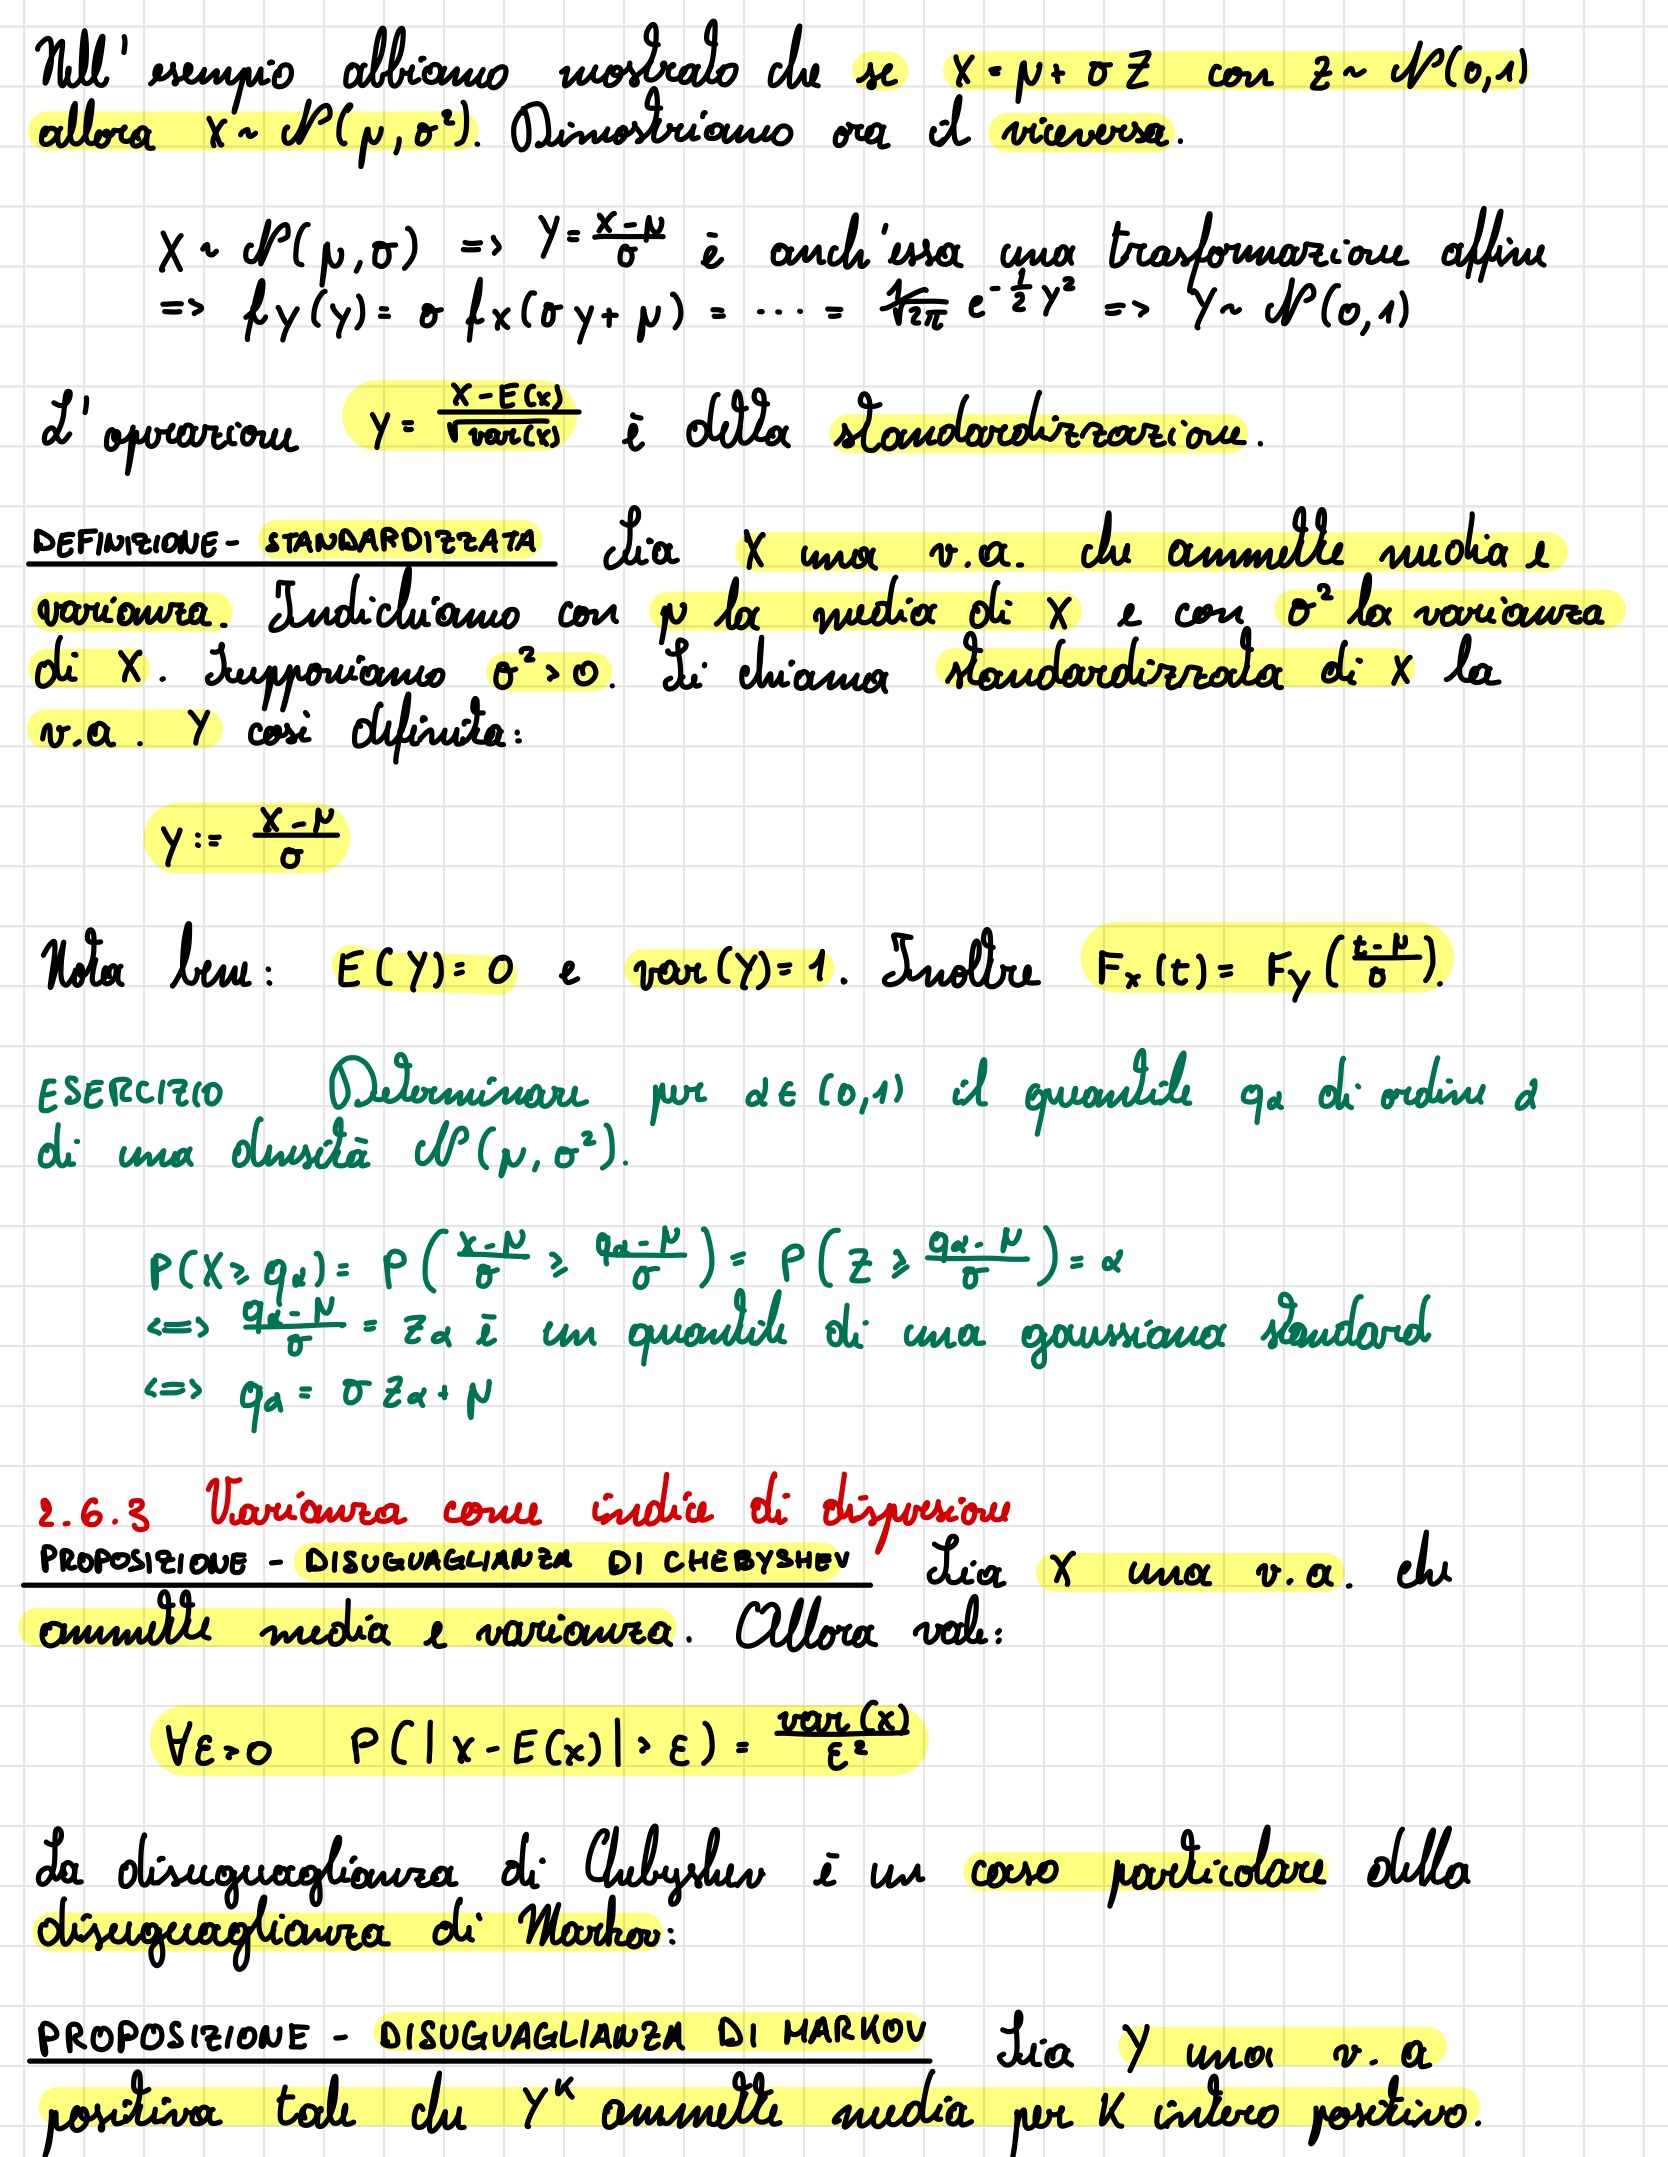 Nell' esempio abbiamo mostrato che se X = μ + σ Z con Z ~ N(0,1)
allora X ~ N(μ, σ²). Dimostriamo ora il viceversa.
X ~ N(μ, σ) => Y = (X - μ)/σ è anch'essa una trasformazione affine
=> f_Y(y) = σ f_X(σ y + μ) = ... = 1/√2π e^(-1/2 y²) => Y ~ N(0,1)
L'operazione Y = (X - E(X))/√var(X) è detta standardizzazione.
DEFINIZIONE - STANDARDIZZATA Sia X una v.a. che ammette media e
varianza. Indichiamo con μ la media di X e con σ² la varianza
di X. Supponiamo σ² > 0. Si chiama standardizzata di X la
v.a. Y così definita:
Y := (X - μ)/σ
Nota bene: E(Y) = 0 e var(Y) = 1. Inoltre F_X(t) = F_Y((t - μ)/σ).
ESERCIZIO Determinare per α ∈ (0,1) il quantile q_α di ordine α
di una densità N(μ, σ²).
P(X ≥ q_α) = P((X - μ)/σ ≥ (q_α - μ)/σ) = P(Z ≥ (q_α - μ)/σ) = α
<=> (q_α - μ)/σ = z_α è un quantile di una gaussiana standard
<=> q_α = σ z_α + μ
2.6.3 Varianza come indice di dispersione
PROPOSIZIONE - DISUGUAGLIANZA DI CHEBYSHEV Sia X una v.a. che
ammette media e varianza. Allora vale:
∀ε > 0 P(|X - E(X)| > ε) = var(X)/ε²
La disuguaglianza di Chebyshev è un caso particolare della
disuguaglianza di Markov:
PROPOSIZIONE - DISUGUAGLIANZA DI MARKOV Sia Y una v.a
positiva tale che Y^K ammette media per K intero positivo.